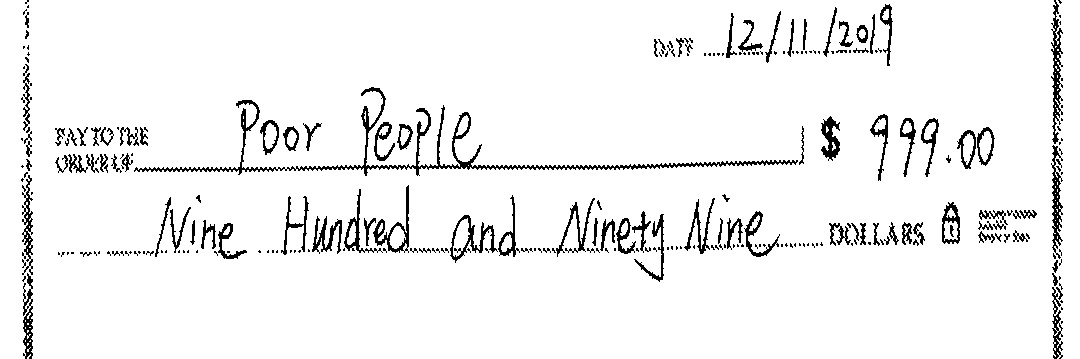 DATE 12/11/2019
PAY TO THE
ORDER OF Poor People $ 999.00
Nine Hundred and Ninety Nine DOLLARS